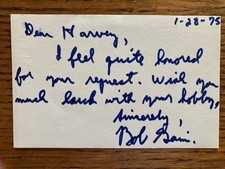 1-28-75
Dear Harvey,
I feel quite honored
for your request. Wish you
much luck with your hobby,
Sincerely,
Bob Gain.